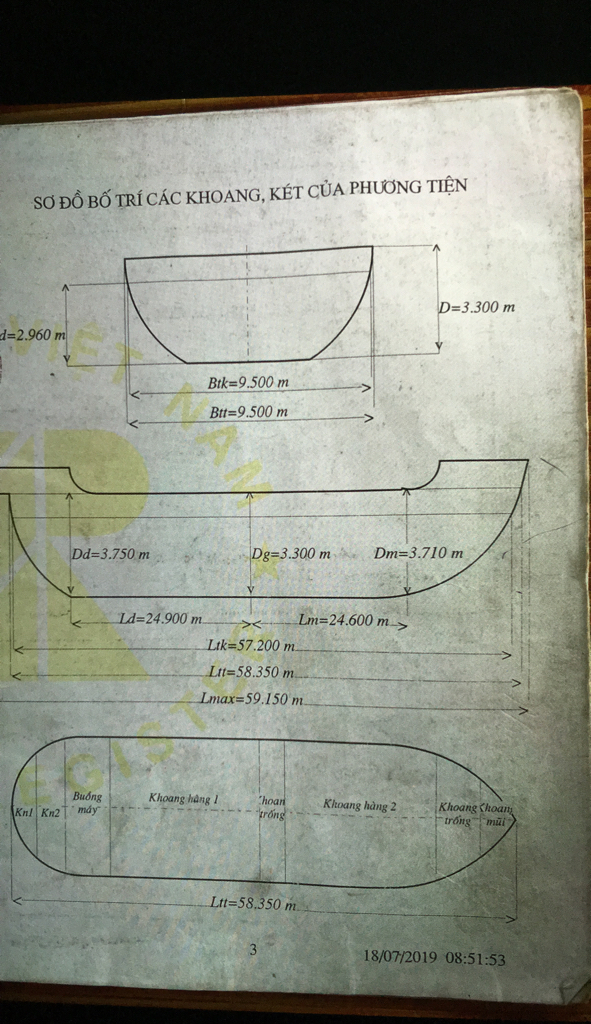 SƠ ĐỒ BỐ TRÍ CÁC KHOANG, KÉT CỦA PHƯƠNG TIỆN
D=3.300 m
d=2.960 m
Btk=9.500 m
Btt=9.500 m
VIỆT NAM
Dd=3.750 m
Dg=3.300 m
Dm=3.710 m
Ld=24.900 m
Lm=24.600 m
Ltk=57.200 m
Ltt=58.350 m
Lmax=59.150 m
EGISTER
Kn1
Kn2
Buồng
máy
Khoang hàng 1
hoan
trống
Khoang hàng 2
Khoang
trống
hoan
mũi
Ltt=58.350 m
3
18/07/2019 08:51:53